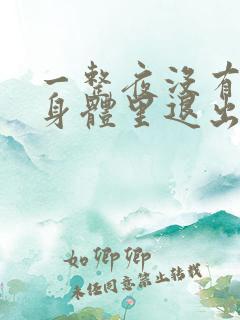 一整夜沒有
身體里退出
如卿卿
未经同意禁止转载